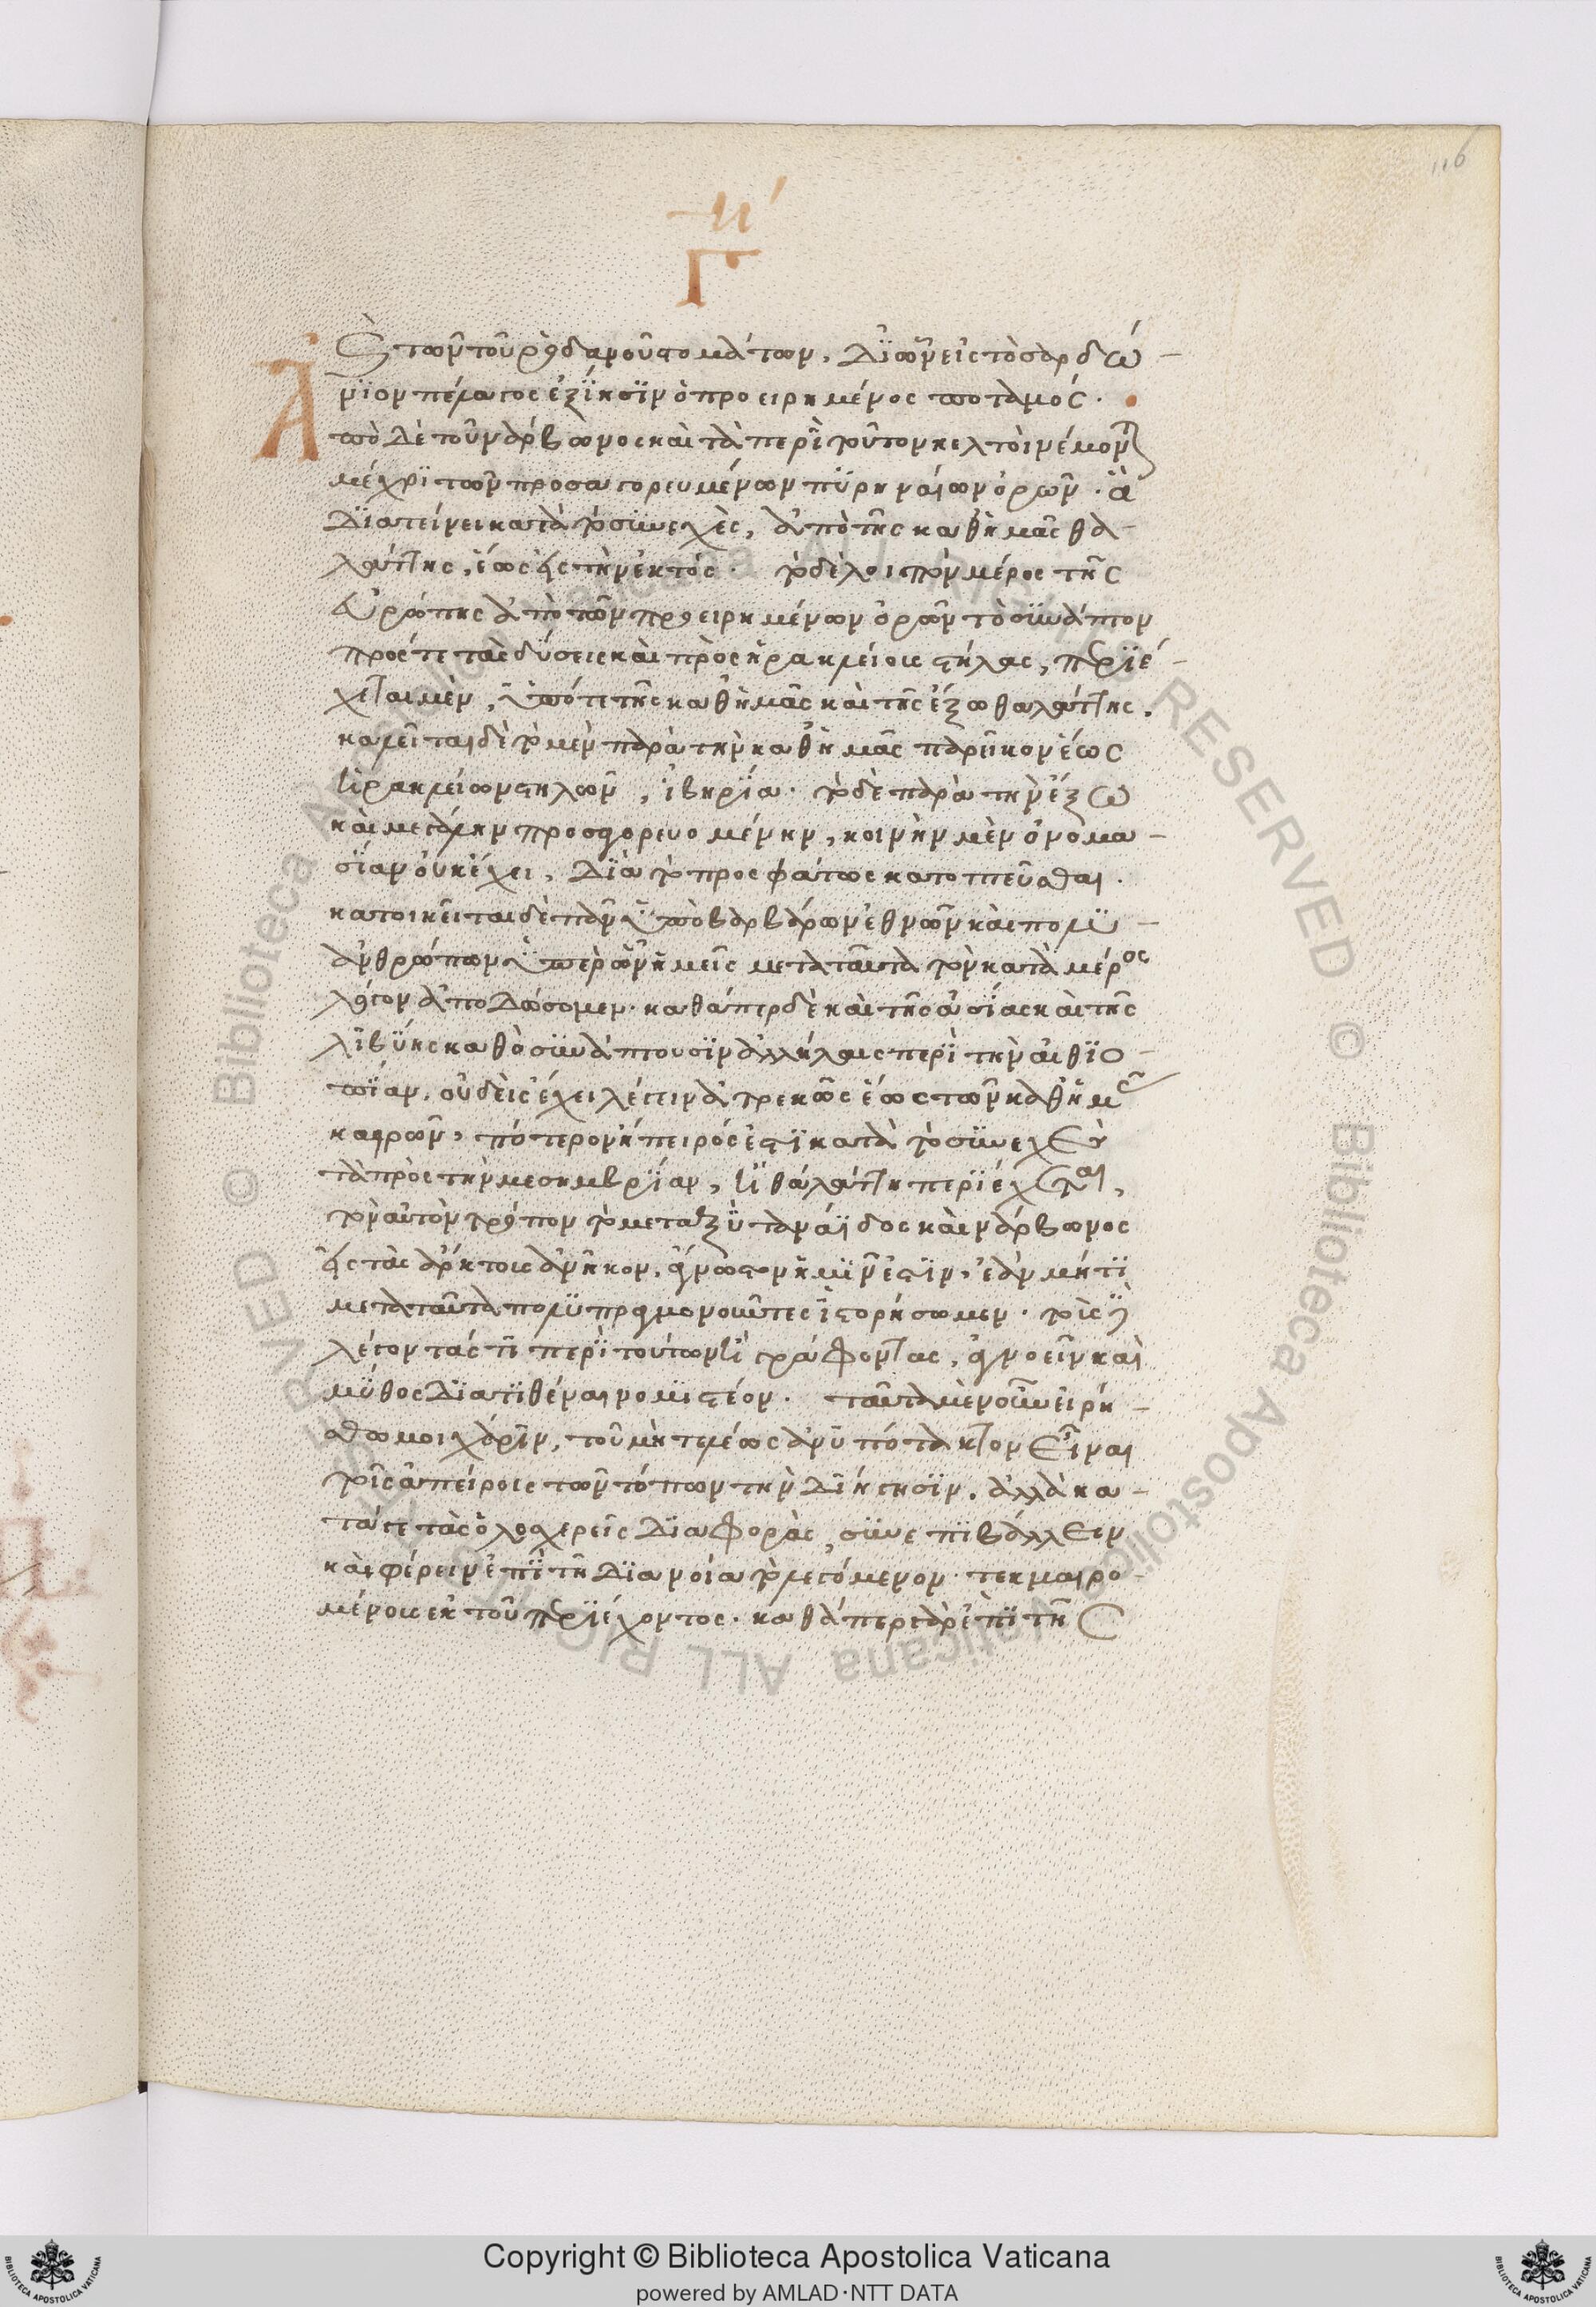 116
Γ
ἐκ τῶν τοῦ ῥοδανοῦ στομάτων, δι ὧν εἰς τὸ σαρδώ-
νιον πέλαγος ἐξίησιν ὁ προειρημένος ποταμός.
Ἀπὸ δὲ τοῦ νάρβωνος καὶ τὰ περὶ τοῦτον κελτοὶ νέμοντ
μέχρι τῶν προσαγορευμένων πυρηναίων ὀρῶν. ἃ
διατείνει κατὰ τὸ συνεχὲς, ἀπὸ τῆς καθ ἡμᾶς θα-
λάττης, ἕως εἰς τὴν ἐκτός. τὸ δὲ λοιπὸν μέρος τῆς
εὐρώπης ἀπὸ τῶν προειρημένων ὀρῶν τὸ συνάπτον
πρός τε τὰς δύσεις καὶ πρὸς ἡρακλείους στήλας, περιέ-
χεται μὲν, ὑπό τε τῆς καθ ἡμᾶς καὶ τῆς ἔξω θαλάττης.
καλεῖται δὲ τὸ μὲν παρὰ τὴν καθ ἡμᾶς παρῆκον ἕως
ἡρακλείων στηλῶν, ἰβηρία. τὸ δὲ παρὰ τὴν ἔξω
καὶ μεγάλην προσαγορευομένην, κοινὴν μὲν ὀνομα-
σίαν οὐκ ἔχει, διὰ τὸ προσφάτως κατοπτεῦσθαι.
κατοικεῖται δὲ πᾶν ὑπὸ βαρβάρων ἐθνῶν καὶ πολυ-
ανθρώπων ὑπὲρ ὧν ἡμεῖς μετὰ ταῦτα τὸν κατὰ μέρος
λόγον ἀποδώσομεν. καθάπερ δὲ καὶ τῆς ἀσίας καὶ τῆς
λιβύης καθὸ συνάπτουσιν ἀλλήλαις περὶ τὴν αἰθιο-
πίαν, οὐδεὶς ἔχει λέγειν ἀτρεκῶς ἕως τῶν καθ ἡμᾶς
καιρῶν, πότερον ἤπειρός ἐστι κατὰ τὸ συνεχὲς
τὰ πρὸς τὴν μεσημβρίαν, ἢ θαλάττη περιέχεται,
τὸν αὐτὸν τρόπον τὸ μεταξὺ ταναΐδος καὶ νάρβωνος
εἰς τὰς ἄρκτους ἀνῆκον, ἄγνωστον ἡμῖν ἐστιν, ἐὰν μή τι
μετὰ ταῦτα πολυπραγμονοῦντες ἱστορήσωμεν. τοὺς δὲ
λέγοντάς τι περὶ τούτων ἢ γράφοντας, ἀγνοεῖν καὶ
μύθος διατιθέναι νομιστέον. ταῦτα μὲν οὖν εἰρή-
σθω μοι χάριν, τοῦ μὴ τελέως ἀνυπότακτον εἶναι
τοῖς ἀπείροις τῶν τόπων τὴν διήγησιν. ἀλλὰ κα-
τά γε τὰς ὁλοσχερεῖς διαφορὰς, συνεπιβάλλειν
καὶ φέρειν ἐπὶ τῇ διανοία τὸ λεγόμενον. τεκμαιρο-
μένους ἐκ τοῦ περιέχοντος. καθάπερ γὰρ ἐπὶ τῆς
Copyright © Biblioteca Apostolica Vaticana
powered by AMLAD·NTT DATA